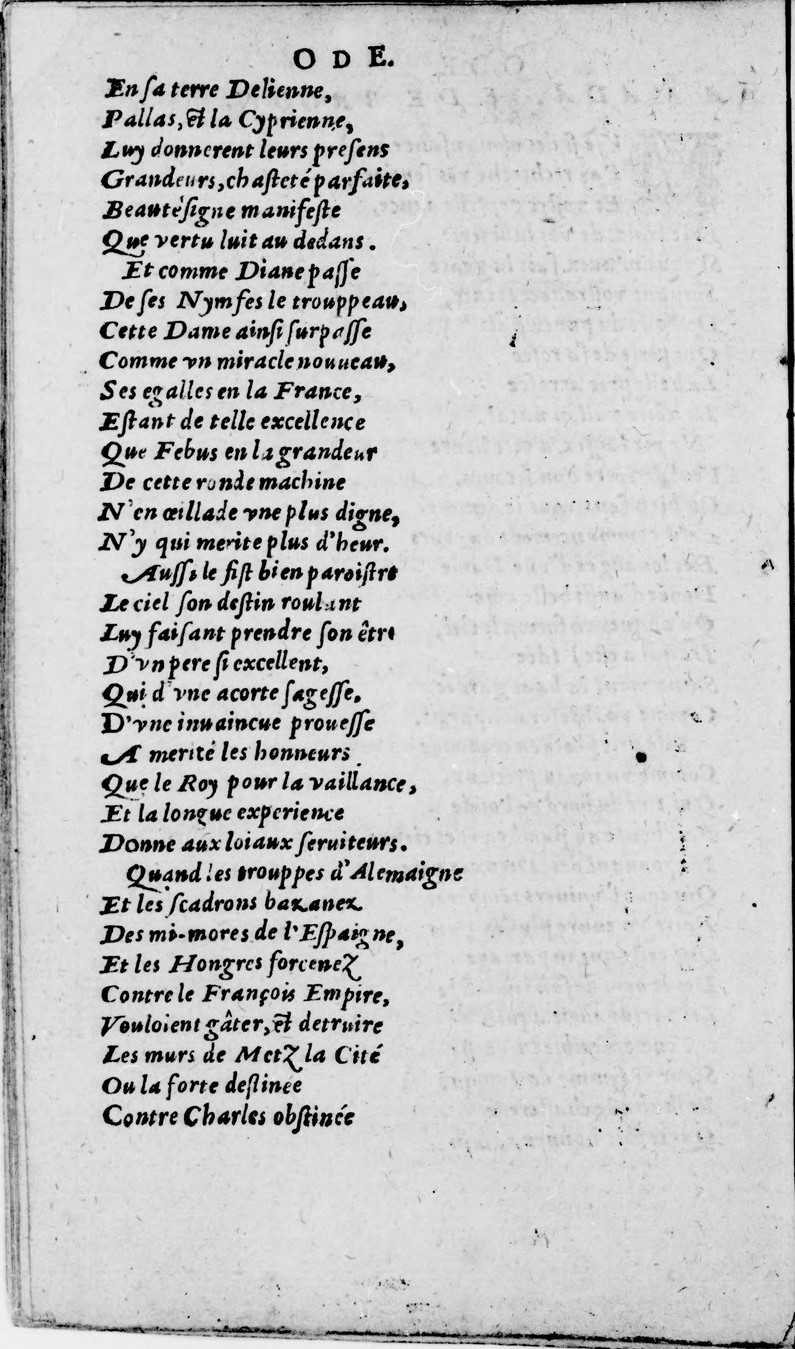 ODE.
En ſa terre Delienne,
Pallas, & la Cyprienne,
Luy donnerent leurs preſens
Grandeurs, chaſteté parfaite,
Beauté ſigne manifeſte
Que vertu luit au dedans.
Et comme Diane paſſe
De ſes Nymfes le trouppeau,
Cette Dame ainſi ſurpaſſe
Comme vn miracle nouueau,
Ses egalles en la France,
Eſtant de telle excellence
Que Febus en la grandeur
De cette ronde machine
N'en œillade vne plus digne,
N'y qui merite plus d'heur.
Auſſi le fiſt bien paroiſtre
Le ciel ſon deſtin roulant
Luy faiſant prendre ſon être
D'vn pere ſi excellent,
Qui d'vne acorte ſageſſe,
D'vne inuaincue proueſſe
A merité les honneurs
Que le Roy pour la vaillance,
Et la longue experience
Donne aux loiaux ſeruiteurs.
Quand les trouppes d'Alemaigne
Et les ſcadrons bazanez
Des mi-mores de l'Eſpaigne,
Et les Hongres forcenez
Contre le François Empire,
Vouloient gâter, & detruire
Les murs de Metz la Cité
Ou la forte deſtinée
Contre Charles obſtinée